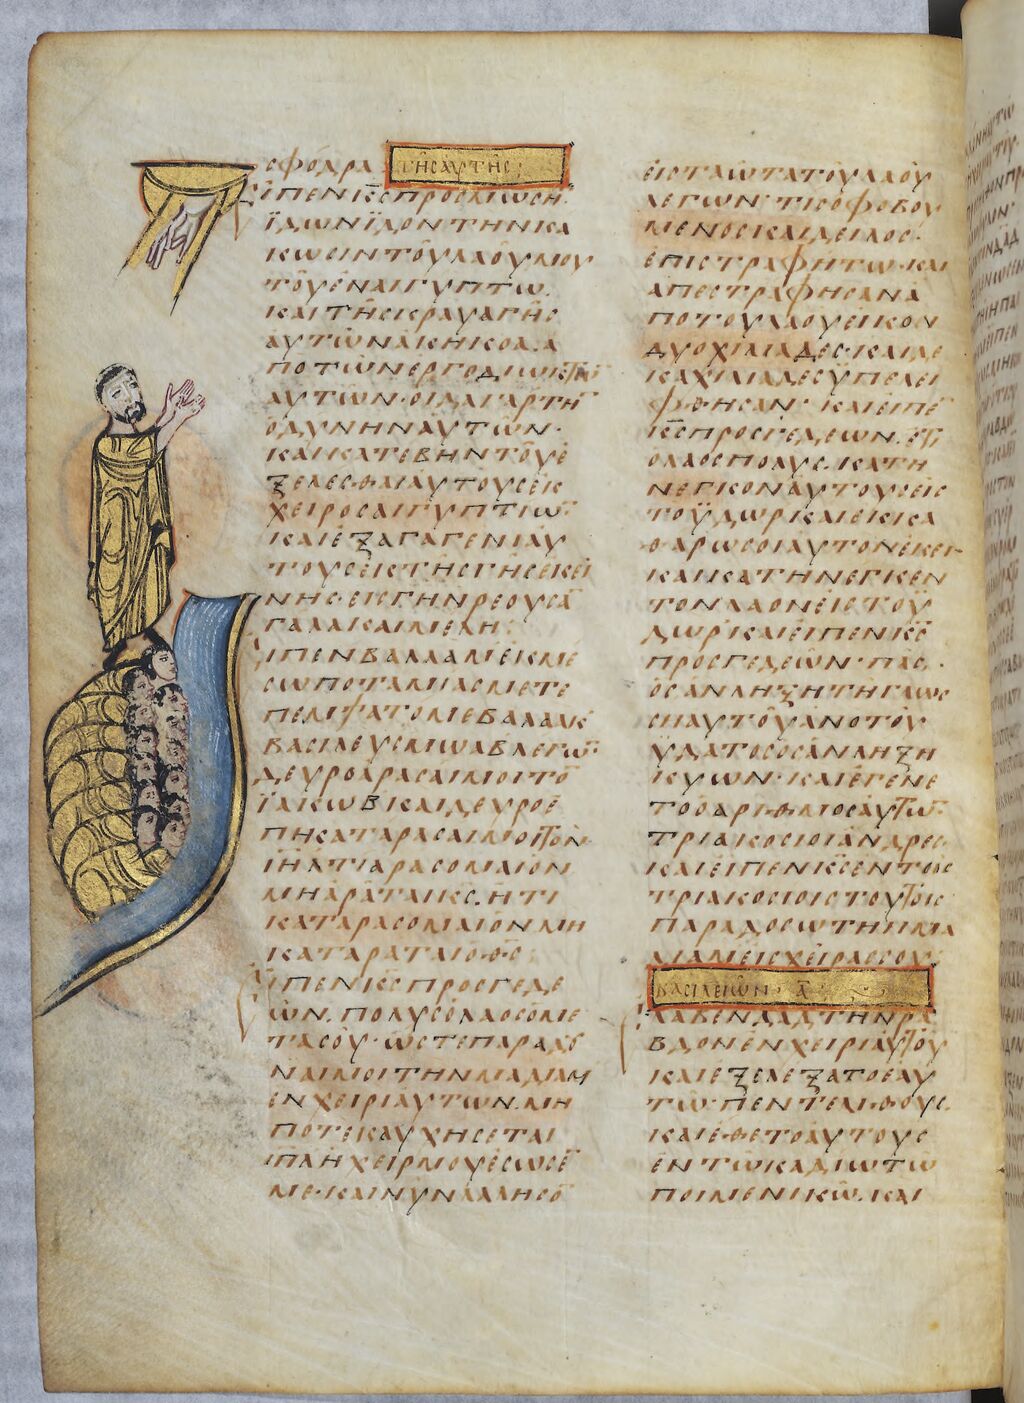 σφόδρα
τῆς αὐτῆς:
εἶπεν κ̅ς προς μωσῆ
ἰδὼν ἴδον τὴν κα
κωσιν τοῦ λαοῦ μου
τοῦ ἐν αἰγύπτω.
και τῆς κραυγῆς
αὐτῶν ἀκήκοα. ἀ
πο τῶν ἐργοδιωκτῶν
αὐτῶν· οἶδα γὰρ τὴν
ὀδύνην αὐτῶν·
και κατέβην τοῦ ἐ
ξελέσθαι αὐτοὺς ἐκ
χειρὸς αἰγυπτίων
και ἐξαγαγεῖν αὐ
τους ἐκ τῆς γῆς ἐκεί
νης· εἰς γῆν ρέουσαν
γάλα και μέλι:
εἶπεν βαλααμ ἐκ με
σωποταμίας μετε
πεμψατο με βαλαακ
βασιλεὺς μωαβ λέγων
δεῦρο ἄρασαί μοι τὸν
ἰακωβ και δεῦρο ἐ
πικατάρασαί μοι τὸν
ι̅η̅λ τί ἀράσομαι ὃν
μὴ ἀρᾶται κ̅ς. ἢ τί
καταράσομαι ὃν μὴ
καταρᾶται ὁ θ̅ς:
εἶπεν κ̅ς πρὸς γεδε
ών. πολὺς ὁ λαὸς ὁ με
τὰ σοῦ· ὥστε παραδο
ναί μοι τὴν μαδιαμ
ἐν χειρὶ αὐτῶν. μή
ποτε καυχήσεται
ι̅η̅λ ἡ χείρ μου ἔσωσεν
με. και νῦν λάλησον
εἰς τὰ ὦτα τοῦ λαοῦ
λέγων· τίς ὁ φοβού
μενος και δειλός·
ἐπιστραφήτω· και
ἀπεστράφησαν ἀ
πο τοῦ λαοῦ εἴκοσι
δύο χιλιάδες· και δέ
κα χιλιάδες ὑπελεί
φθησαν· και εἶπεν
κ̅ς προς γεδεών. ἔτι
ὁ λαὸς πολύς. κατή
νεγκον αὐτοὺς εἰς
το ὕδωρ και ἐκκα
θάρω σοι αὐτὸν ἐκεῖ·
και κατήνεγκεν
τον λαὸν εἰς το ὕ
δωρ· και εἶπεν κ̅ς
προς γεδεών· πᾶς
ὃς ἂν λήξη τῆ γλώσ
ση αὐτοῦ ἀπο τοῦ
ὕδατος ὡς ἂν λήξη
κύων· και ἐγένε
το ὁ ἀριθμὸς αὐτῶν
τριακόσιοι ἄνδρες·
και εἶπεν κ̅ς ἐν τοῖς
τριακοσίοις τούτοις
παραδώσω τὴν μα
διαμ εἰς χεῖρας σου:
βασιλειῶν· α̅
λαβεν δα̅δ̅ τὴν ρα
βδον ἐν χειρὶ αὐτοῦ
και ἐξελέξατο ἑαυ
τῶ πέντε λίθους.
και ἔθετο αὐτοὺς
ἐν τῶ καδίω τῶ
ποιμενικῶ. και